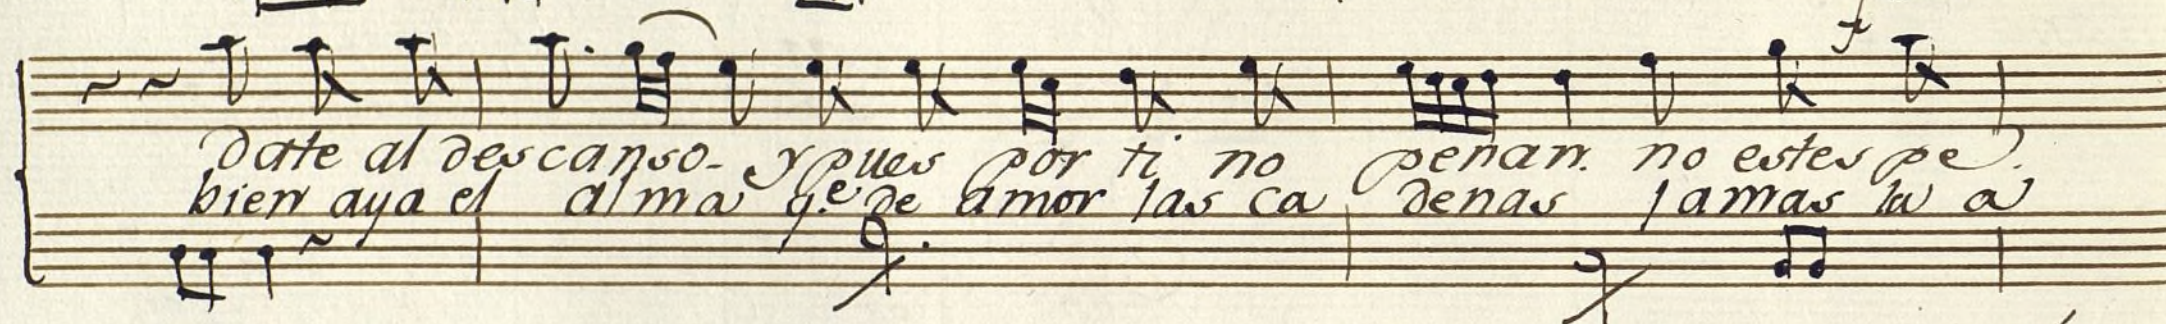 f
date al descanso- y pues por ti no penan. no estes pe.
bien aya el alma q.e de amor las ca denas jamas la a